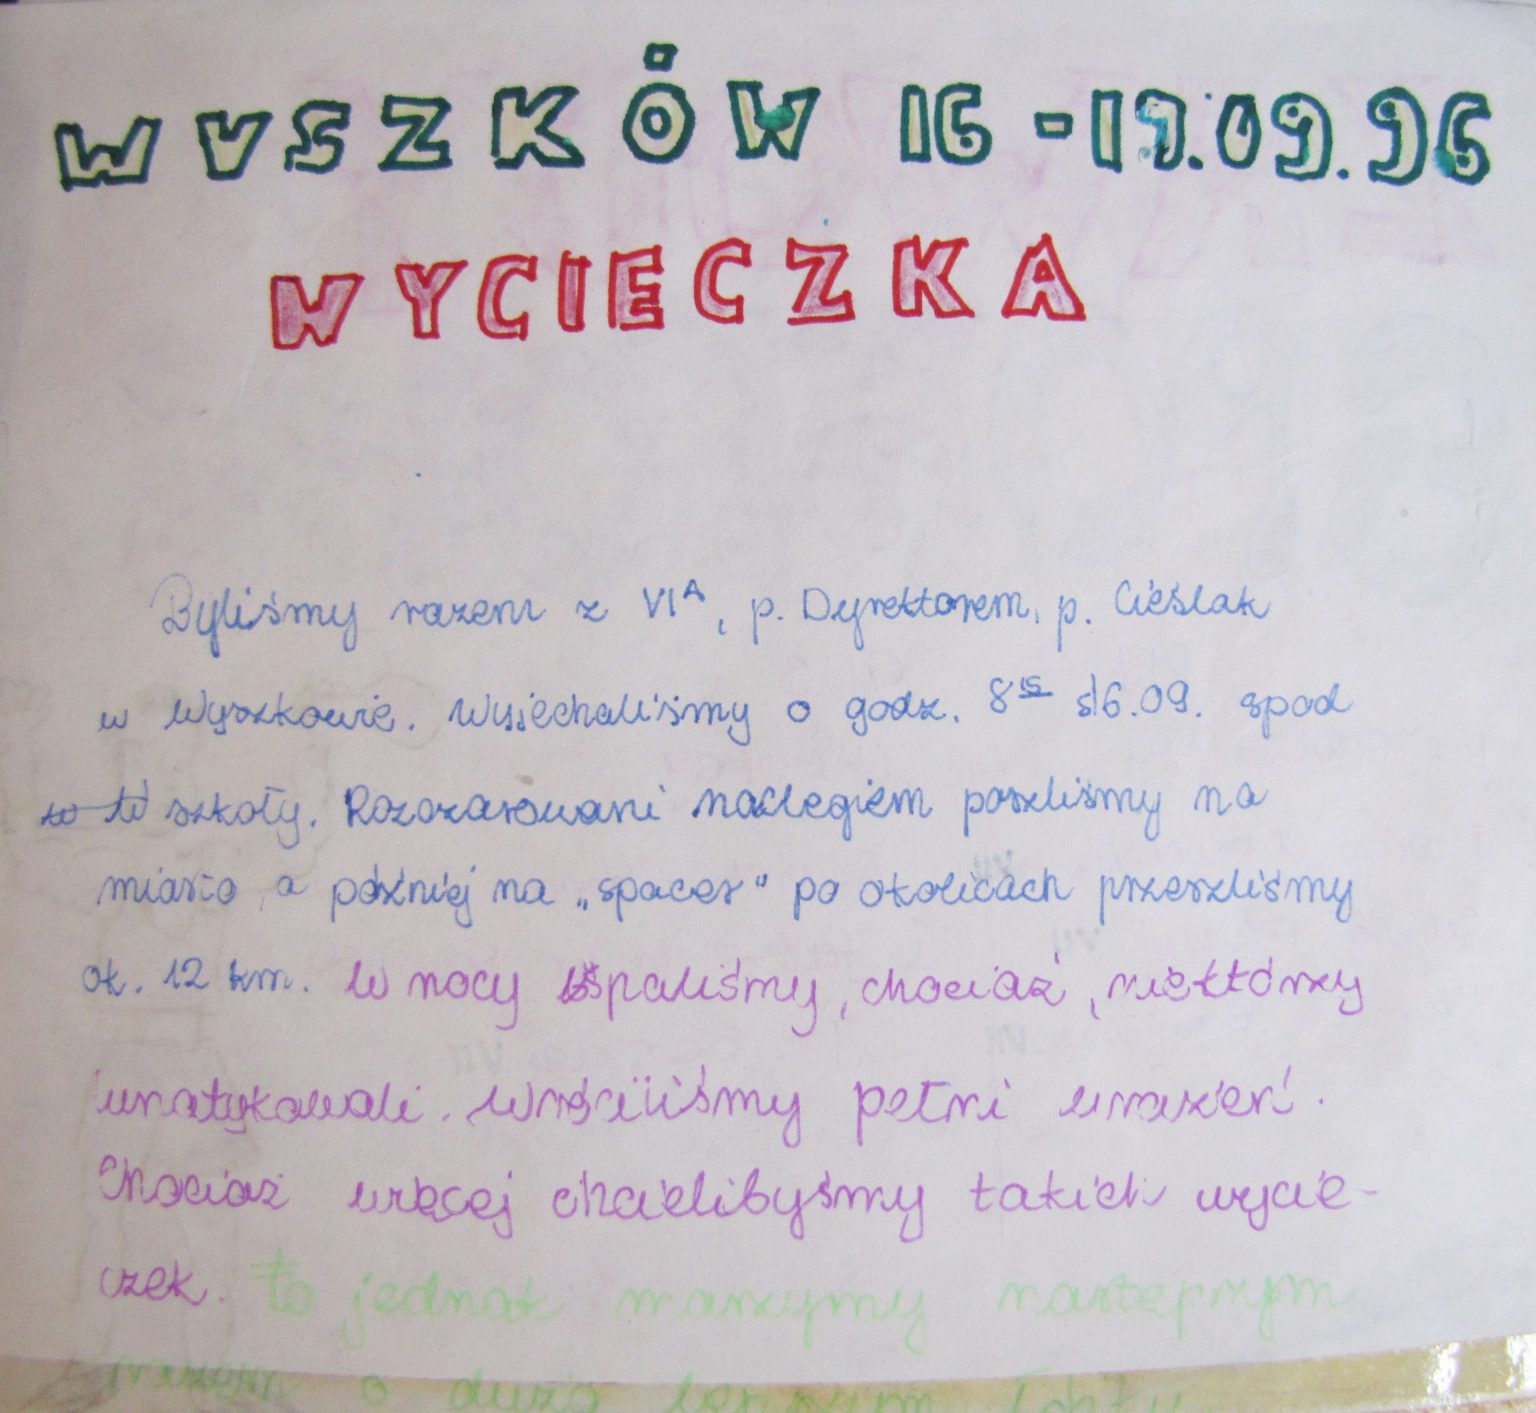 WYSZKÓW 16-19.09.96
WYCIECZKA
Byliśmy razem z VI A, p. Dyrektorem, p. Cieślak
w Wyszkowie. Wyjechaliśmy o godz. 8 15 16.09. spod
szkoły. Rozczarowani noclegiem poszliśmy na
miasto, a później na „spacer" po okolicach przeszliśmy
ok. 12 km. W nocy spaliśmy, chociaż, niektórzy
Wróciliśmy pełni wrażeń.
Chociaż więcej chcielibyśmy takich wycie-
czek. To jednak marzymy następnym
razem o dużo lepszym